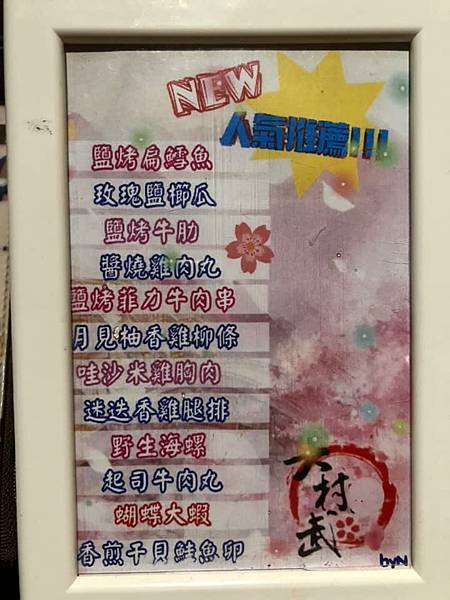 NEW
人氣推薦!!!
鹽烤扁鱈魚
玫瑰鹽櫛瓜
鹽烤牛肋
醬燒雞肉丸
鹽烤菲力牛肉串
月見柚香雞柳條
哇沙米雞胸肉
迷迭香雞腿排
野生海螺
起司牛肉丸
蝴蝶大蝦
香煎干貝鮭魚卵
大村武
byN